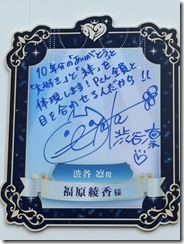 10年分のありがとうと
大好きと絆を
体現します!Pさん全員と
目を合わせるんだから!!
渋谷凛
渋谷 凛役
福原綾香様